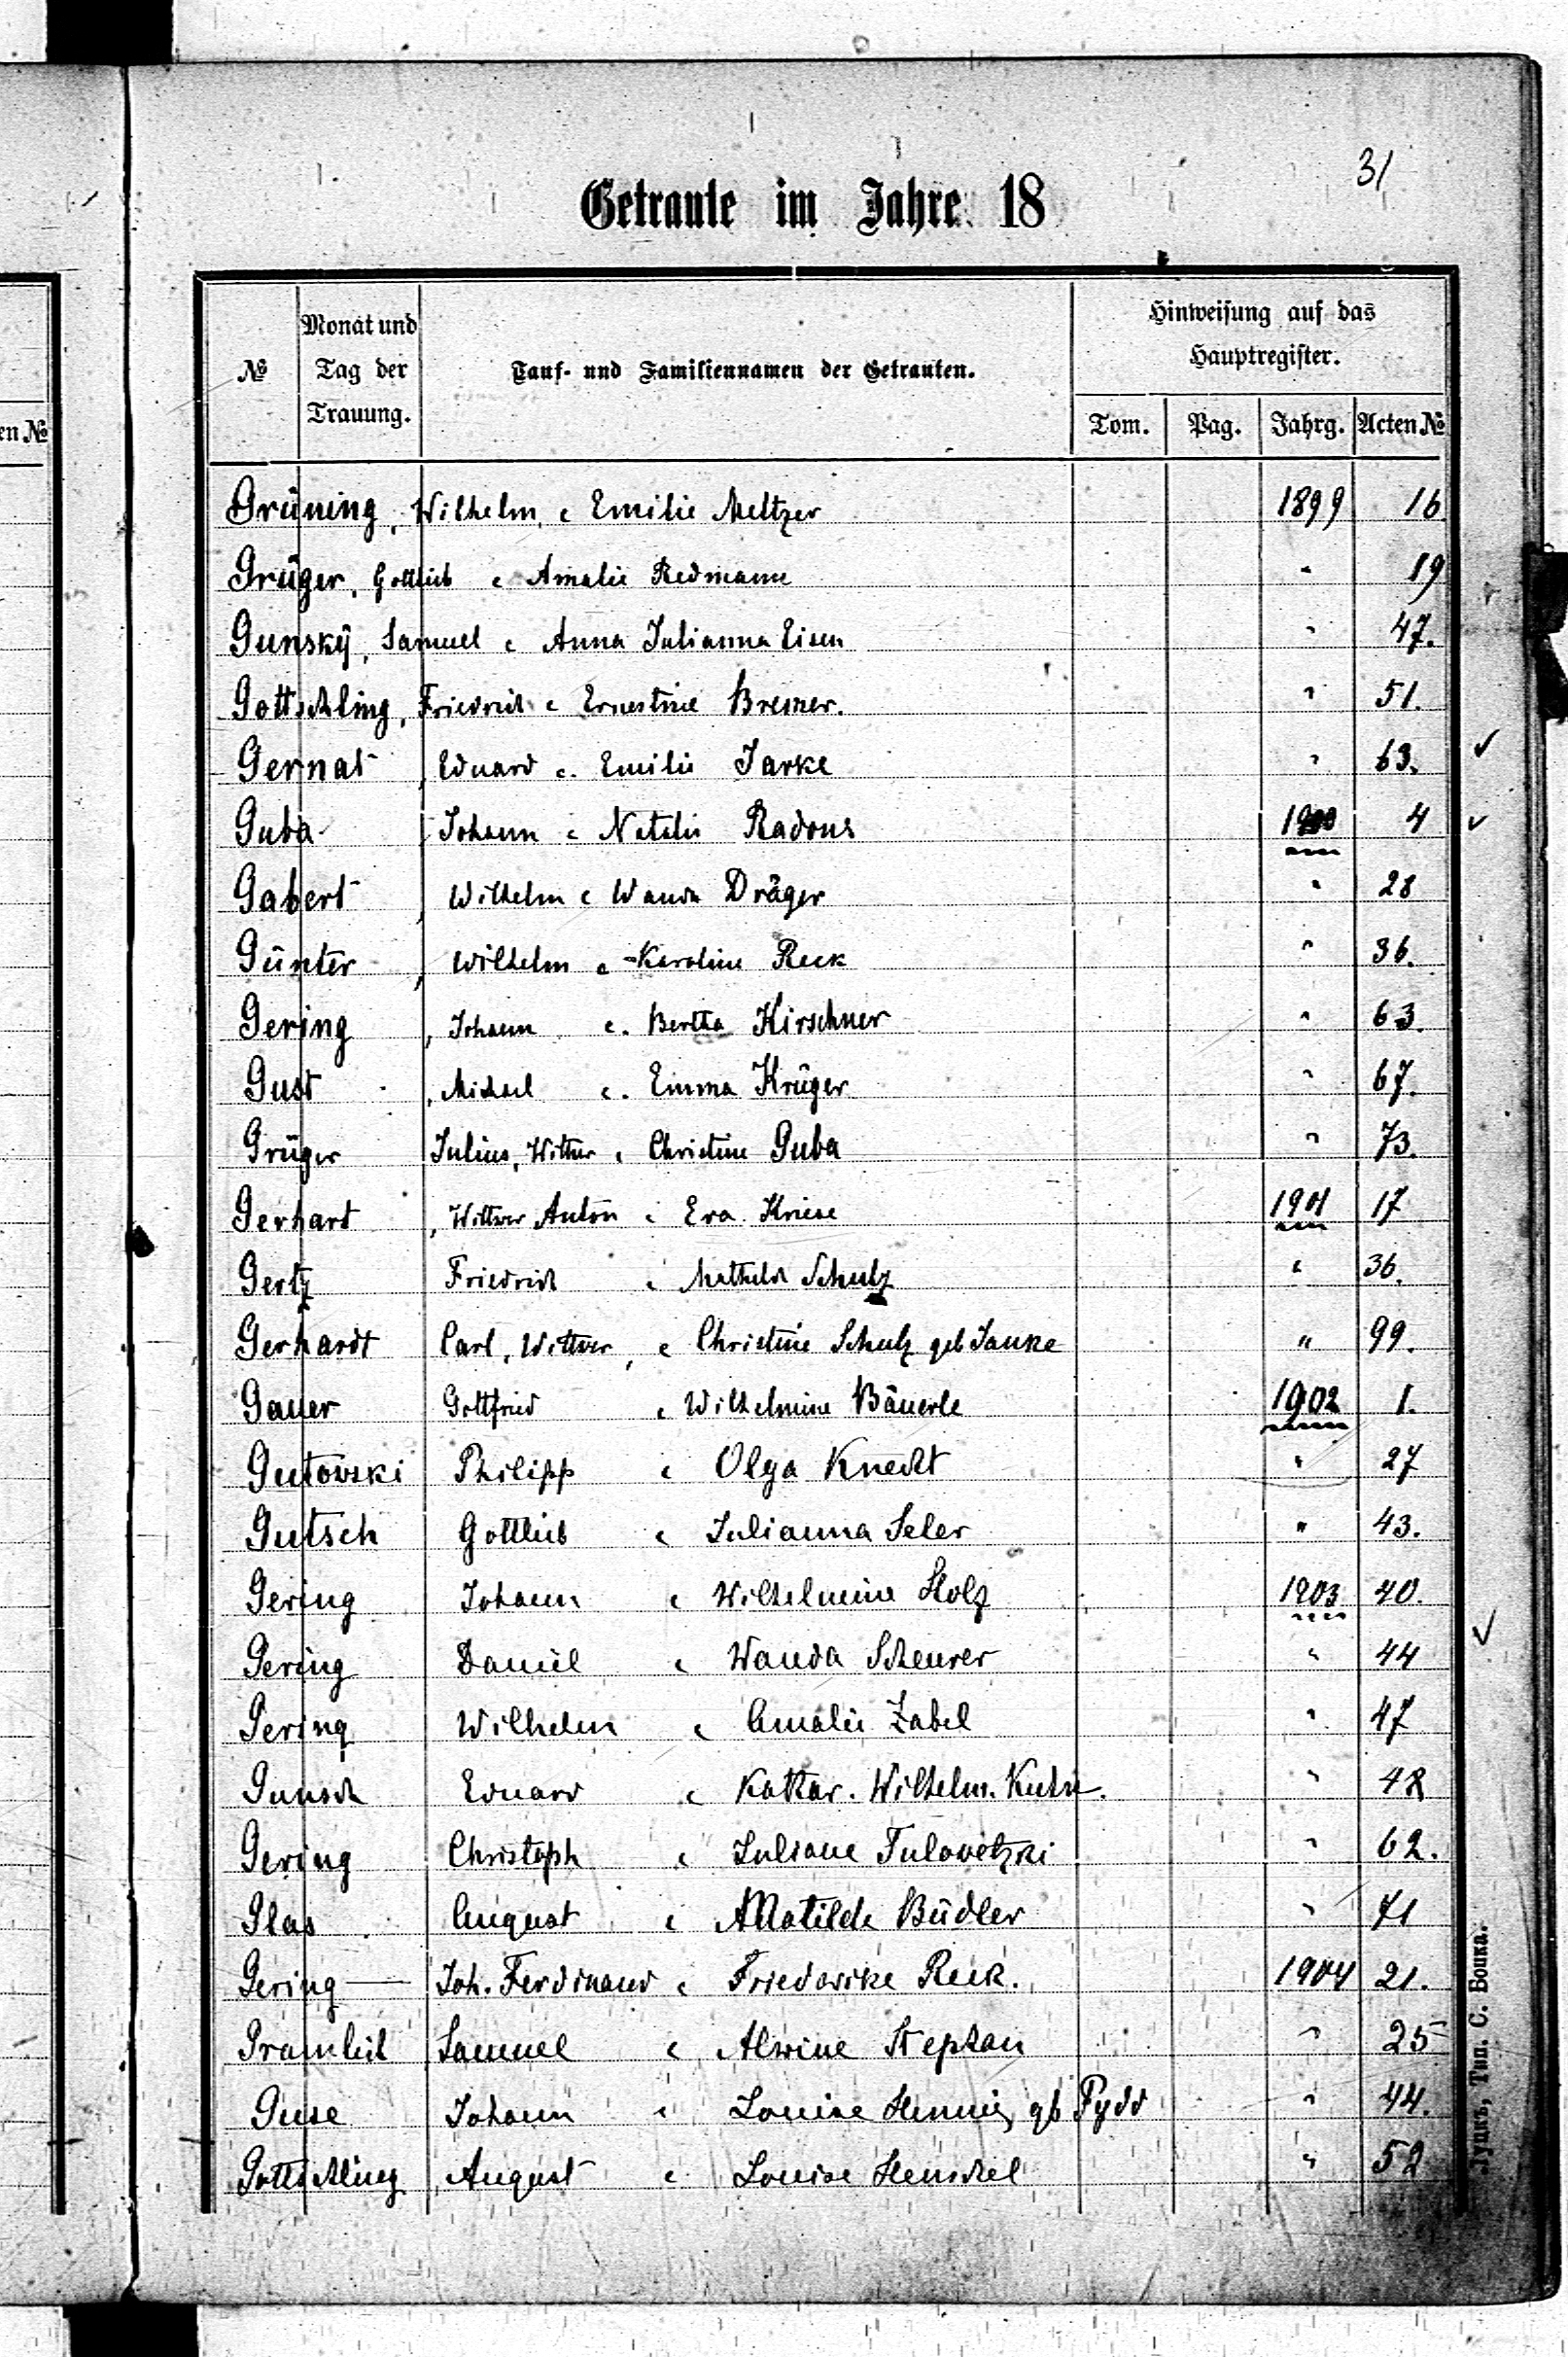 31
Getraute im Jahre 18
№ Monat und Tag der Trauung. Tauf- und Familiennamen der Getrauten. Hinweisung auf das Hauptregister.
Tom. Pag. Jahrg. Acten №
en №
Grüning, Wilhelm c Emilie Meltzer 1899 16.
Grüger, Gottlieb c Amalie Redmann " 19
Gunskÿ, Samuel c Anna Julianna Eisen " 47.
Gottschling, Friedrich c Ernestine Bremer. " 51.
Gernat, Eduard c. Emilie Jarke " 63. ✓
Guba, Johann c Natalie Radons 1900 4 ✓
Gabert, Wilhelm c Wanda Dräger " 28
Günter, Wilhelm c Karoline Reck " 36.
Gering, Johann c. Bertha Kirschner " 63.
Gust, Michael c. Emma Krüger " 67.
Grüger Julius, Witwer c Christine Guba " 73.
Gerhart, Wittwer Anton c Eva Kriese 1901 17
Gertz Friedrich c Mathilde Schulz " 36.
Gerhardt Carl, Wittwer, c Christine Schulz geb Janke " 99.
Gauer Gottfried c Wilhelmine Bäuerle 1902 1.
Gutowski Philipp c Olga Knecht " 27
Gutsch Gottlieb c Julianna Seler " 43.
Gering Johann c Wilhelmine Stolz 1903 40.
Gering Daniel c Wanda Scheurer " 44 ✓
Gering Wilhelm c Amalie Zabel " 47
Gunsch Eduard c Kathar. Wilhelm. Kuhn. " 48
Gering Christoph c Juliane Tulowetzki " 62.
Glas August c Matilde Büdler " 71
Gering — Joh. Ferdinand c Friederike Reck. 1904 21.
Gramleid Samuel c Alwine Stephan " 25
Guse Johann c Louise Hennig gb Pydd " 44.
Gottschling, August c Louise Henschel " 52
Луцкъ, Тип. С. Бошка.